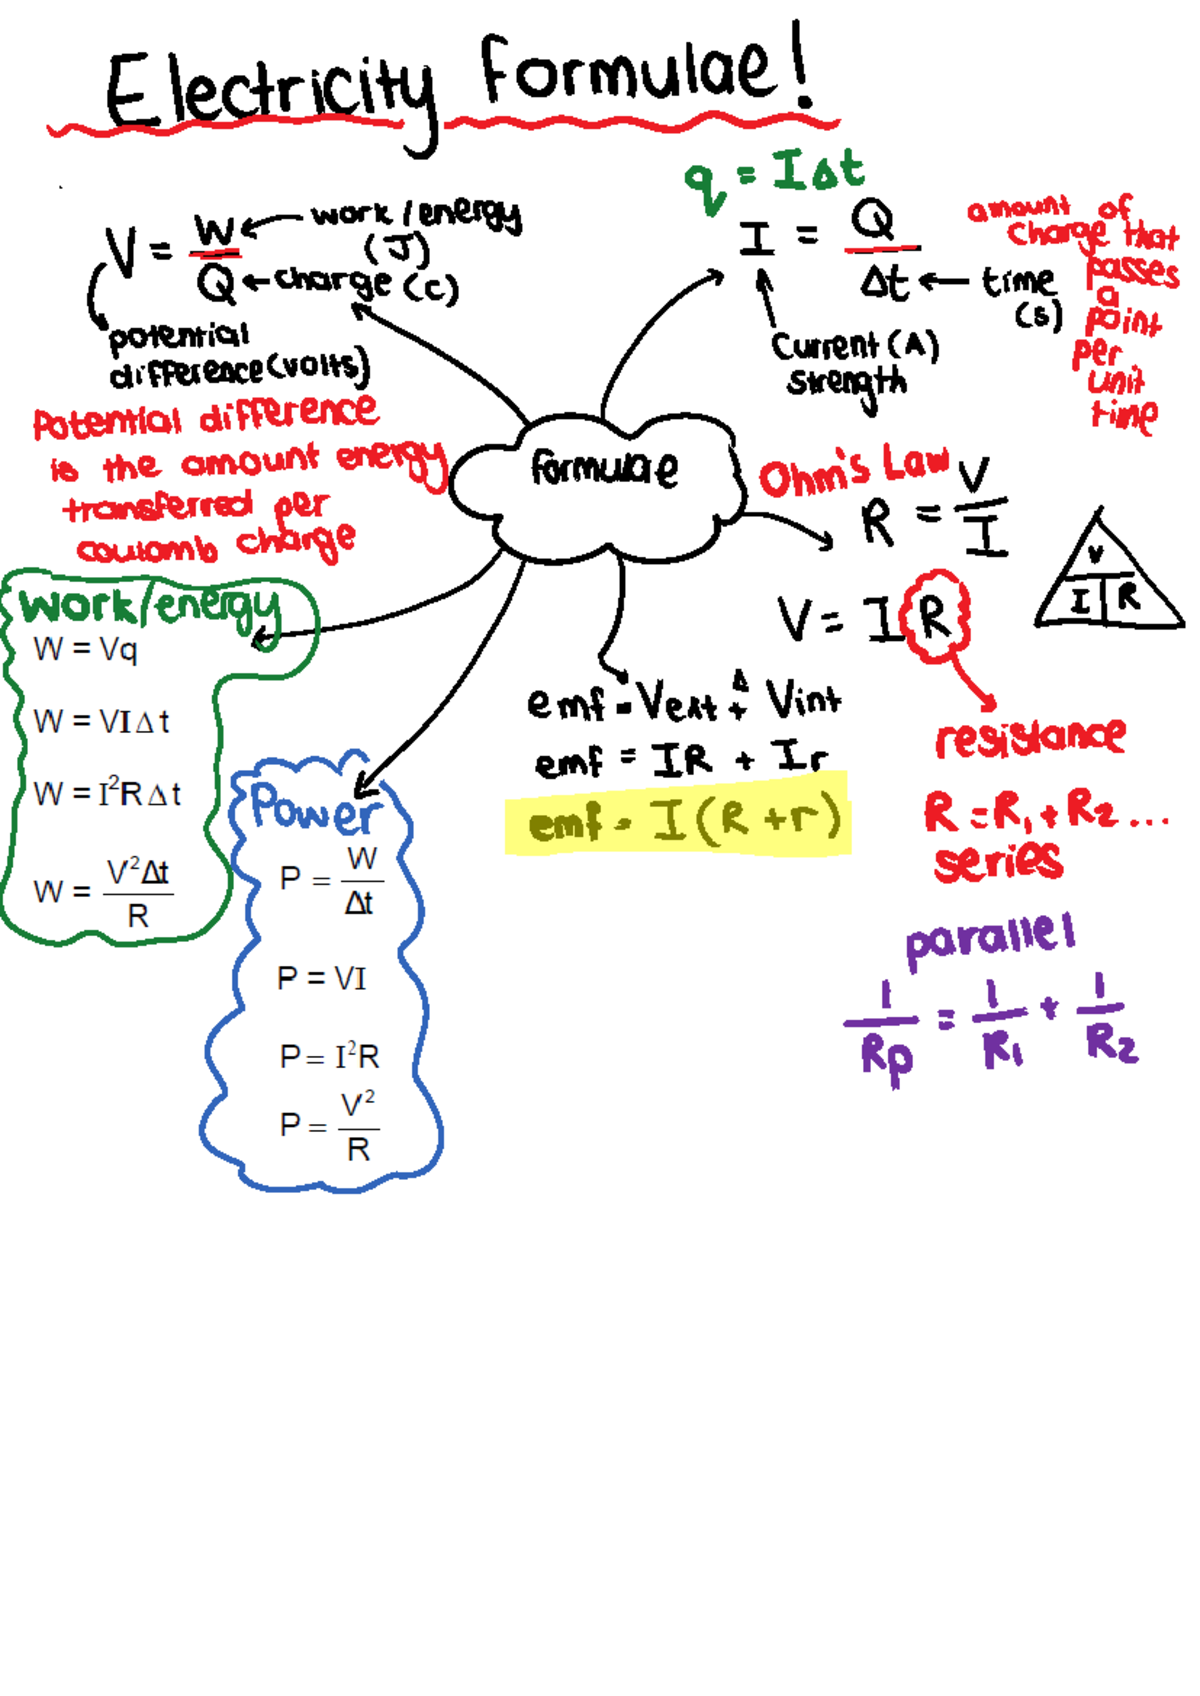 Electricity formulae!
q = IΔt
V = W/Q
work / energy
(J)
charge (c)
potential
difference (volts)
Potential difference
is the amount energy
transferred per
coulomb charge
I = Q/Δt
time
(s)
Current (A)
strength
amount of
charge that
passes
a
point
per
unit
time
formulae
Ohm's Law
R = V/I
V = IR
V
I R
resistance
R = R₁ + R₂ ...
series
parallel
1/Rp = 1/R₁ + 1/R₂
emf = Vext + Vint
emf = IR + Ir
emf = I (R + r)
work/energy
W = Vq
W = VIΔt
W = I²RΔt
W = V²Δt/R
Power
P = W/Δt
P = VI
P = I²R
P = V²/R